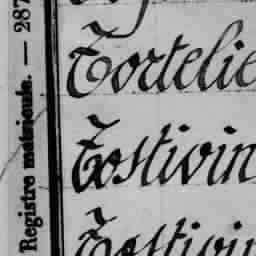 Registre matricule. — 287
Tortelie
Tostivin
Tostivin